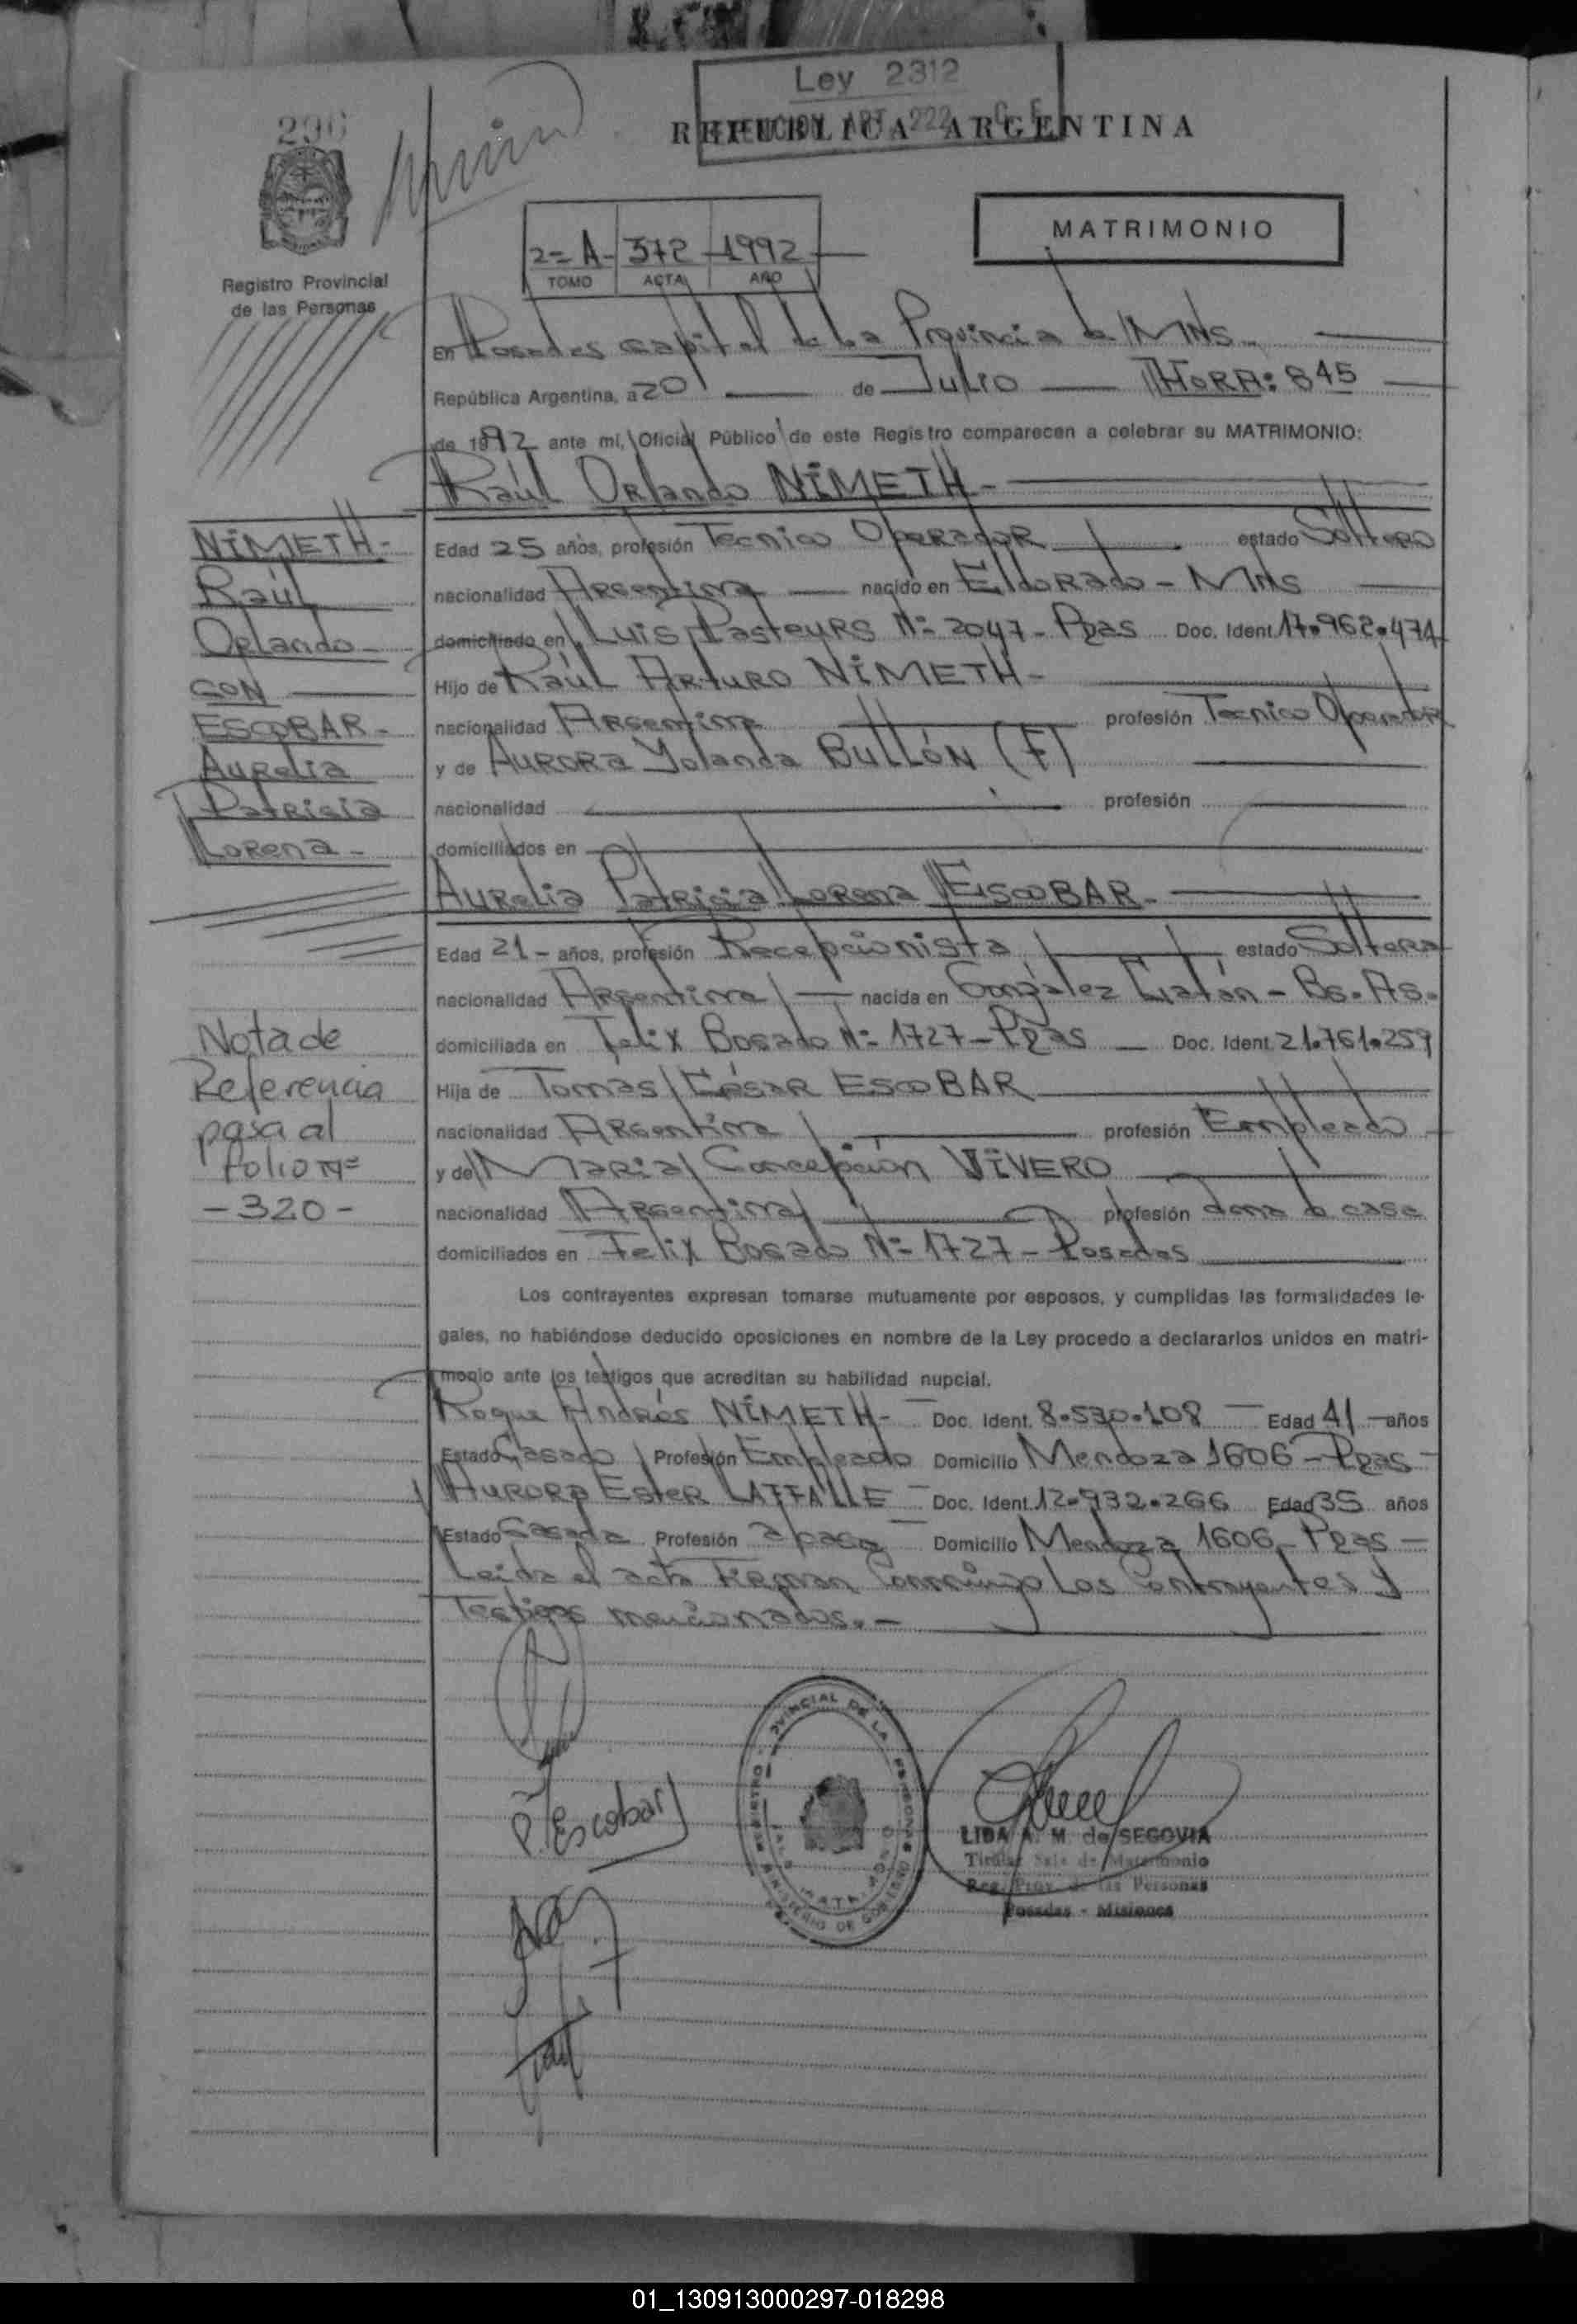 Ley 2312
EXENCION ART. 222 C. F.
REPUBLICA ARGENTINA
296
Registro Provincial
de las Personas
MATRIMONIO
2= A- 372 -1992-
TOMO ACTA AÑO
En Posadas capital de La Provincia de MNS.
República Argentina, a 20 de Julio HORA: 845
de 1992 ante mí, Oficial Público de este Registro comparecen a celebrar su MATRIMONIO:
Raúl Orlando NÍMETH-
Edad 25 años, profesión Tecnico OpeRadoR estado Soltero
nacionalidad Argentina nacido en Eldorado - MNS
domiciliado en Luis Pasteurs Nº 2047- Pdas Doc. Ident. 17.962.474
Hijo de Raúl Arturo NÍMETH-
nacionalidad Argentina profesión Tecnico Operador
y de Aurora Yolanda Bullón (F)
nacionalidad profesión
domiciliados en
Aurelia Patricia Lorena ESCOBAR-
Edad 21 - años, profesión Recepcionista estado Soltera
nacionalidad Argentina nacida en González Catán - Bs. As.
domiciliada en Felix Bogado Nº 1727 - Pdas Doc. Ident. 21.761.259
Hija de Tomás César ESCOBAR
nacionalidad Argentina profesión Empleado
y de Maria Concepción VIVERO
nacionalidad Argentina profesión ama de casa
domiciliados en Felix Bogado Nº 1727 - Posadas
Los contrayentes expresan tomarse mutuamente por esposos, y cumplidas las formalidades le-
gales, no habiéndose deducido oposiciones en nombre de la Ley procedo a declararlos unidos en matri-
monio ante los testigos que acreditan su habilidad nupcial.
Roque Andrés NÍMETH- Doc. Ident. 8.530.108 Edad 41 años
Estado Casado Profesión Empleado Domicilio Mendoza 1606 - Pdas-
Aurora Ester LAFFALLE - Doc. Ident. 12.932.266 Edad 35 años
Estado Casada Profesión Domicilio Mendoza 1606 - Pdas -
Leida el acta Firman Conmigo Los Contrayentes y
Testigos mencionados.-
NÍMETH-
Raúl
Orlando
CON
ESCOBAR-
Aurelia
Patricia
Lorena-
Nota de
Referencia
pasa al
folio Nº
-320-
P. Escobar
LIDA A. M. de SEGOVIA
Titular Sala de Matrimonio
Reg. Prov. de las Personas
Posadas - Misiones
01_130913000297-018298